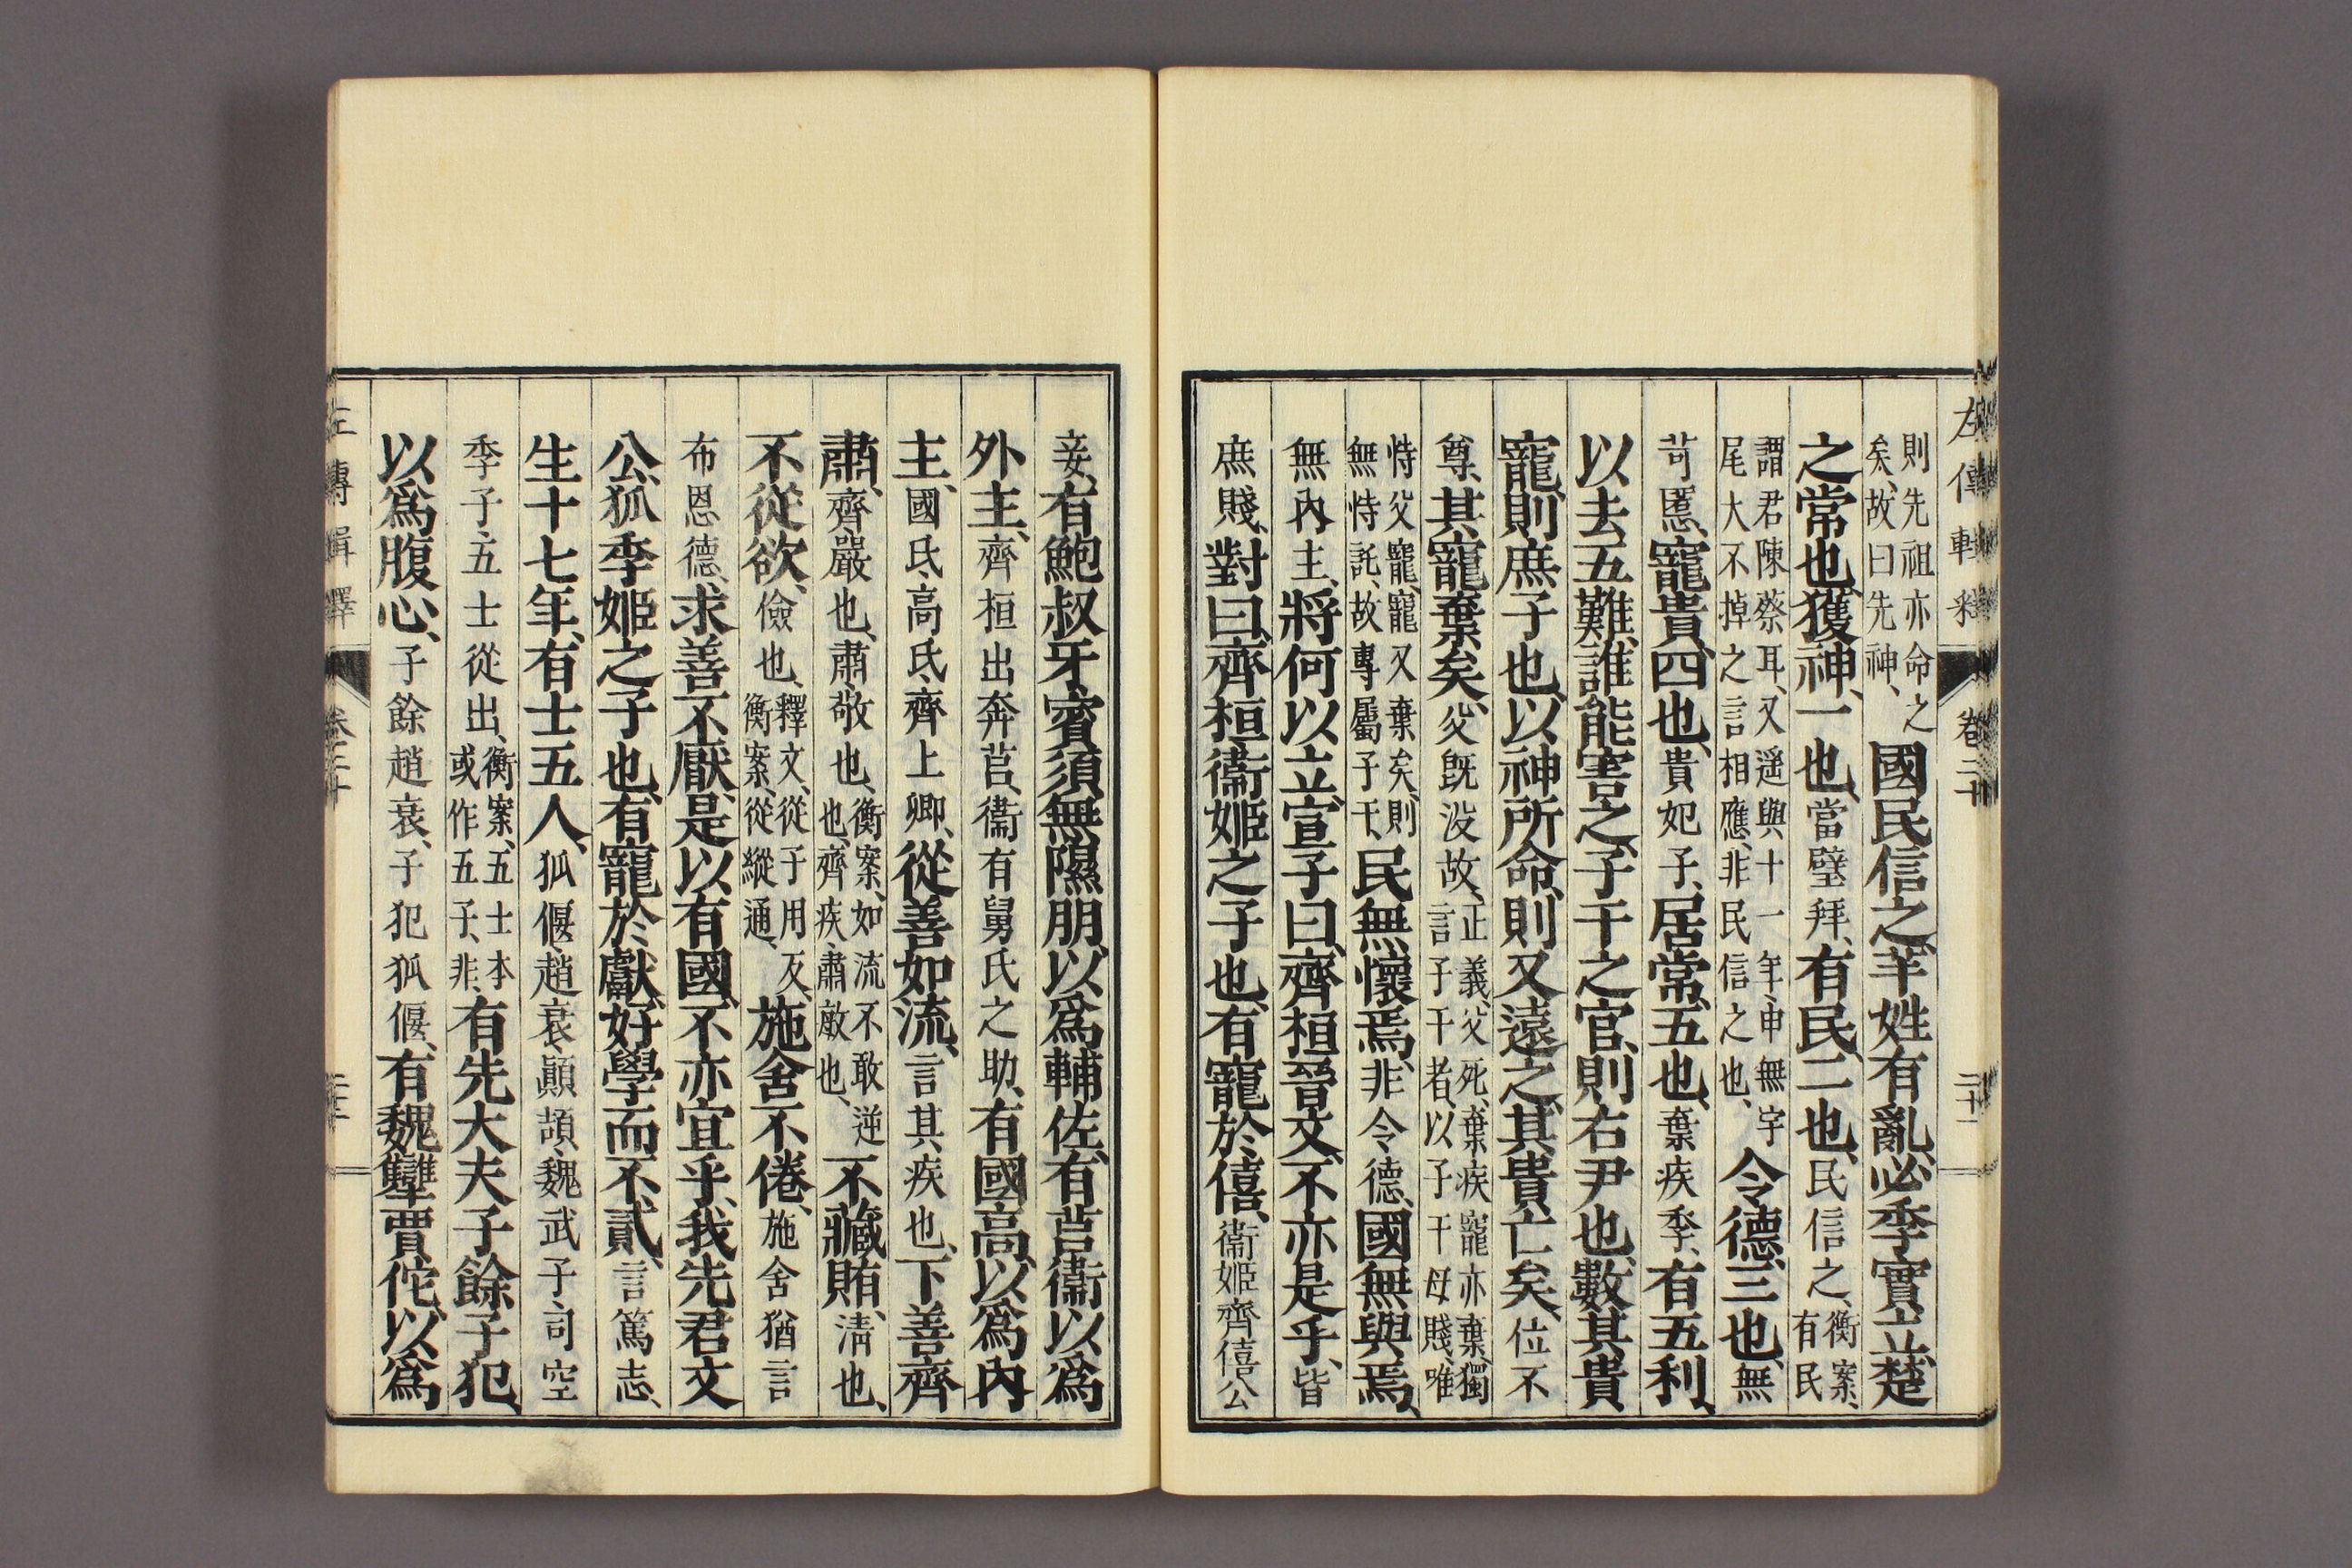 左傳輯釋 卷二十 二十一
則先祖亦命之矣、故曰先神、國民信之、芈姓有亂、必季實立、楚
之常也、獲神、一也、當璧拜、有民、二也、民信之、衡案、有民
謂君陳蔡耳、又遥與十一年、申無宇尾大不掉之言相應、非民信之也、令德、三也、無
苛慝、寵貴、四也、貴妃子、居常、五也、棄疾季、有五利、
以去五難、誰能害之、子干之官、則右尹也、數其貴
寵、則庶子也、以神所命、則又遠之、其貴亡矣、位不
尊、其寵棄矣、父既没故、正義、父死、棄疾寵亦棄、獨言子干者、以子干母賤、唯
恃父寵、寵又棄矣、則無恃託、故專屬子干、民無懷焉、非令德、國無與焉、
無內主、將何以立、宣子曰、齊桓晉文、不亦是乎、皆
庶賤、對曰、齊桓衞姬之子也、有寵於僖、衞姬齊僖公
妾、有鮑叔牙賓須無隰朋、以爲輔佐、有莒衞以爲
外主、齊桓出奔莒、衞有舅氏之助、有國高、以爲內
主、國氏高氏、齊上卿、從善如流、言其疾也、下善齊
肅、齊嚴也、肅敬也、衡案、如流不敢逆也、齊疾、肅敵也、不藏賄、淸也、
不從欲、儉也、釋文、從子用反、衡案、從縱通、施舍不倦、施舍猶言
布恩德、求善不厭、是以有國、不亦宜乎、我先君文
公、狐季姬之子也、有寵於獻、好學而不貳、言篤志、
生十七年、有士五人、狐偃、趙衰、顚頡、魏武子、司空
季子、五士從出、衡案、五士本或作五子、非、有先大夫子餘子犯、
以爲腹心、子餘趙衰、子犯狐偃、有魏犨賈佗、以爲
左傳輯釋 卷二十